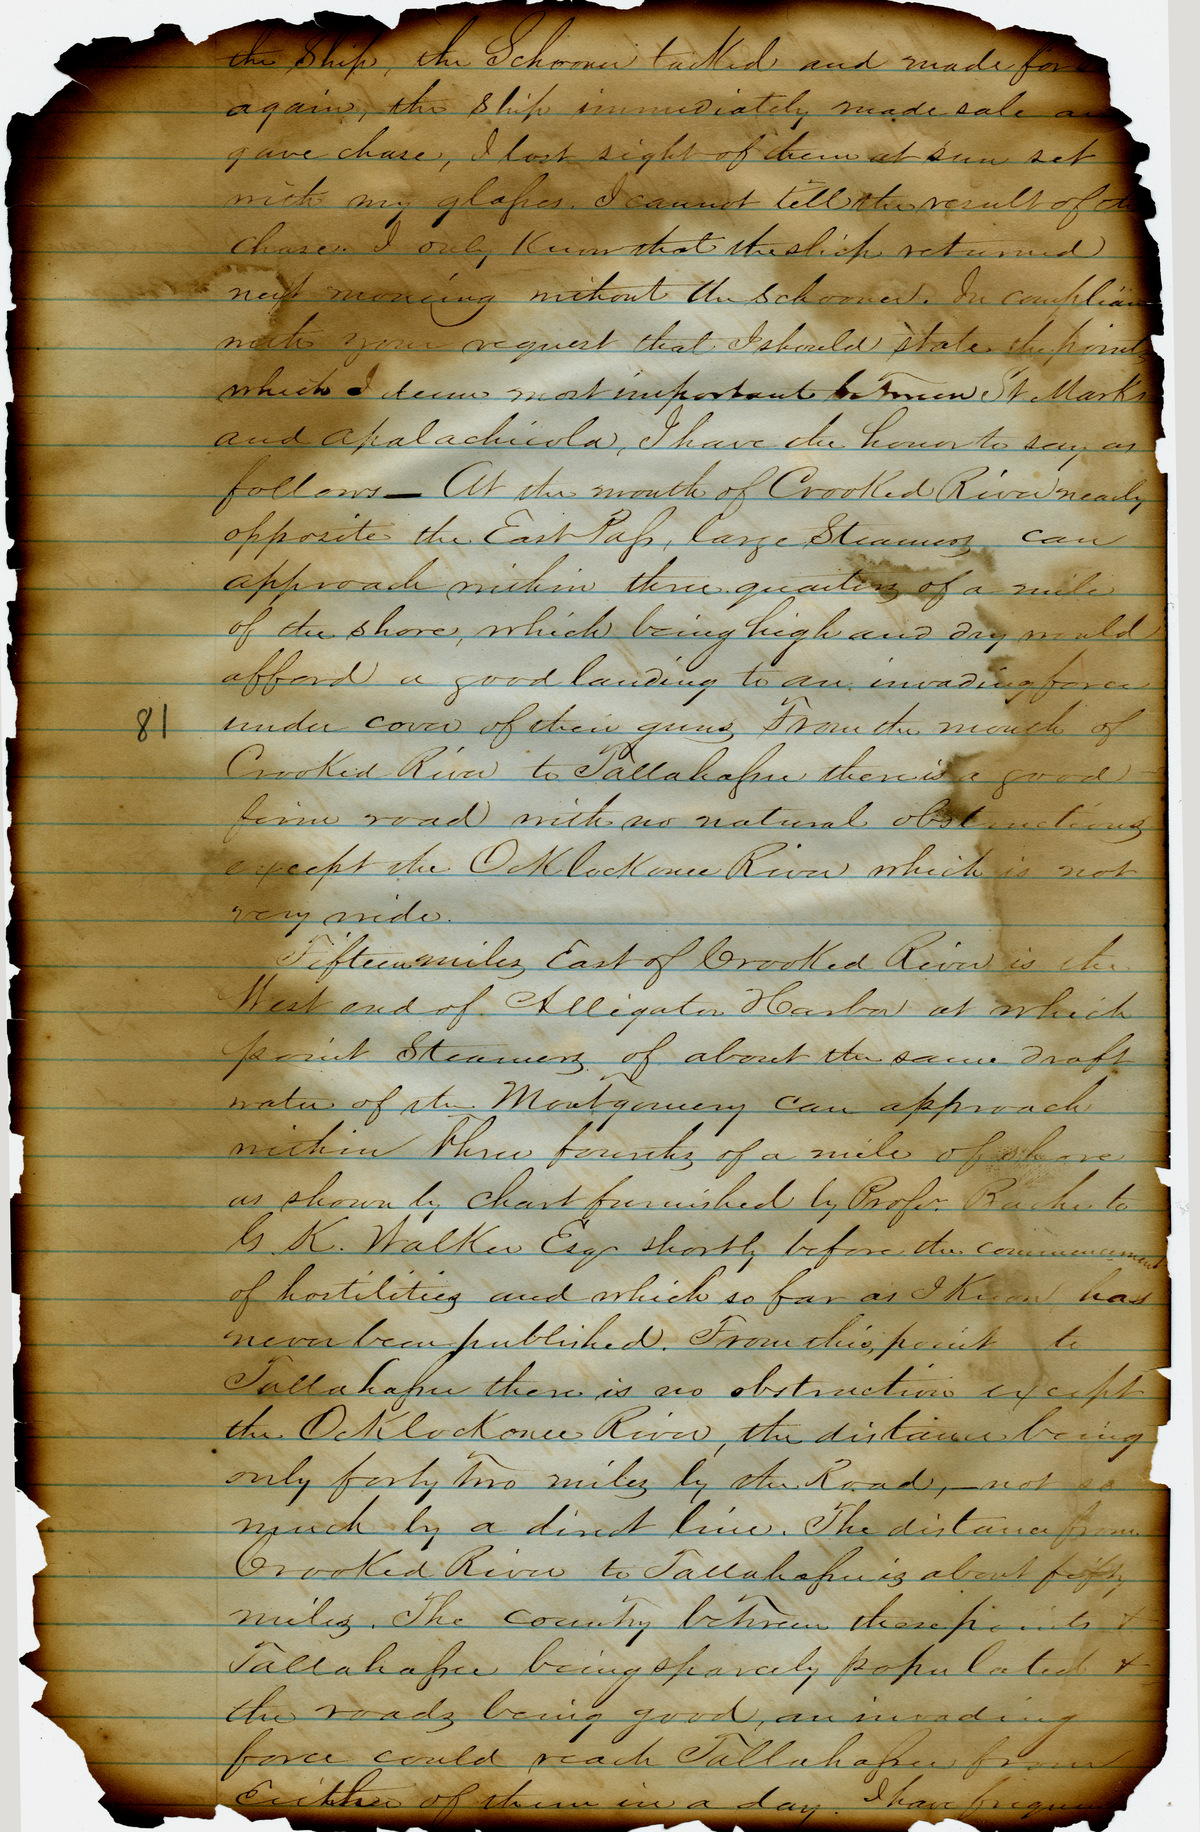 the Ship, the Schooner tacked and made for
again, the ship immediately made sale an
gave chase, I lost sight of them at sun set
with my glasses. I cannot tell the result of
chase. I only Know that the ship returned
next morning without the schooner. In complian
with your request that I should state the points
which I deem most important between St Marks
and Apalachicola, I have the honor to say as
follows — At the mouth of Crooked River nearly
opposite the East Pass, large Steamers can
approach within three quarters of a mile
of the shore, which being high and dry would
afford a good landing to an invading force
81 under cover of their guns From the mouth of
Crooked River to Tallahassee there is a good
firm road with no natural obstructions
except the Ocklockonee River which is not
very wide.
Fifteen miles East of Crooked River is the
West end of Alligator Harbor at which
point Steamers of about the same draft
water of the Montgomery can approach
within three fourths of a mile of shore
as shown by chart furnished by Profr. Bache to
G. K. Walker Esqr shortly before the commencement
of hostilities and which so far as I Know has
never been published. From this point to
Tallahassee there is no obstruction except
the Ocklockonee River, the distance being
only forty two miles by the Road, — not so
much by a direct line. The distance from
Crooked River to Tallahassee is about fifty
miles. The country between these points &
Tallahassee being sparcely populated &
the roads being good, an invading
force could reach Tallahassee from
Eeither of them in a day. I have frequen